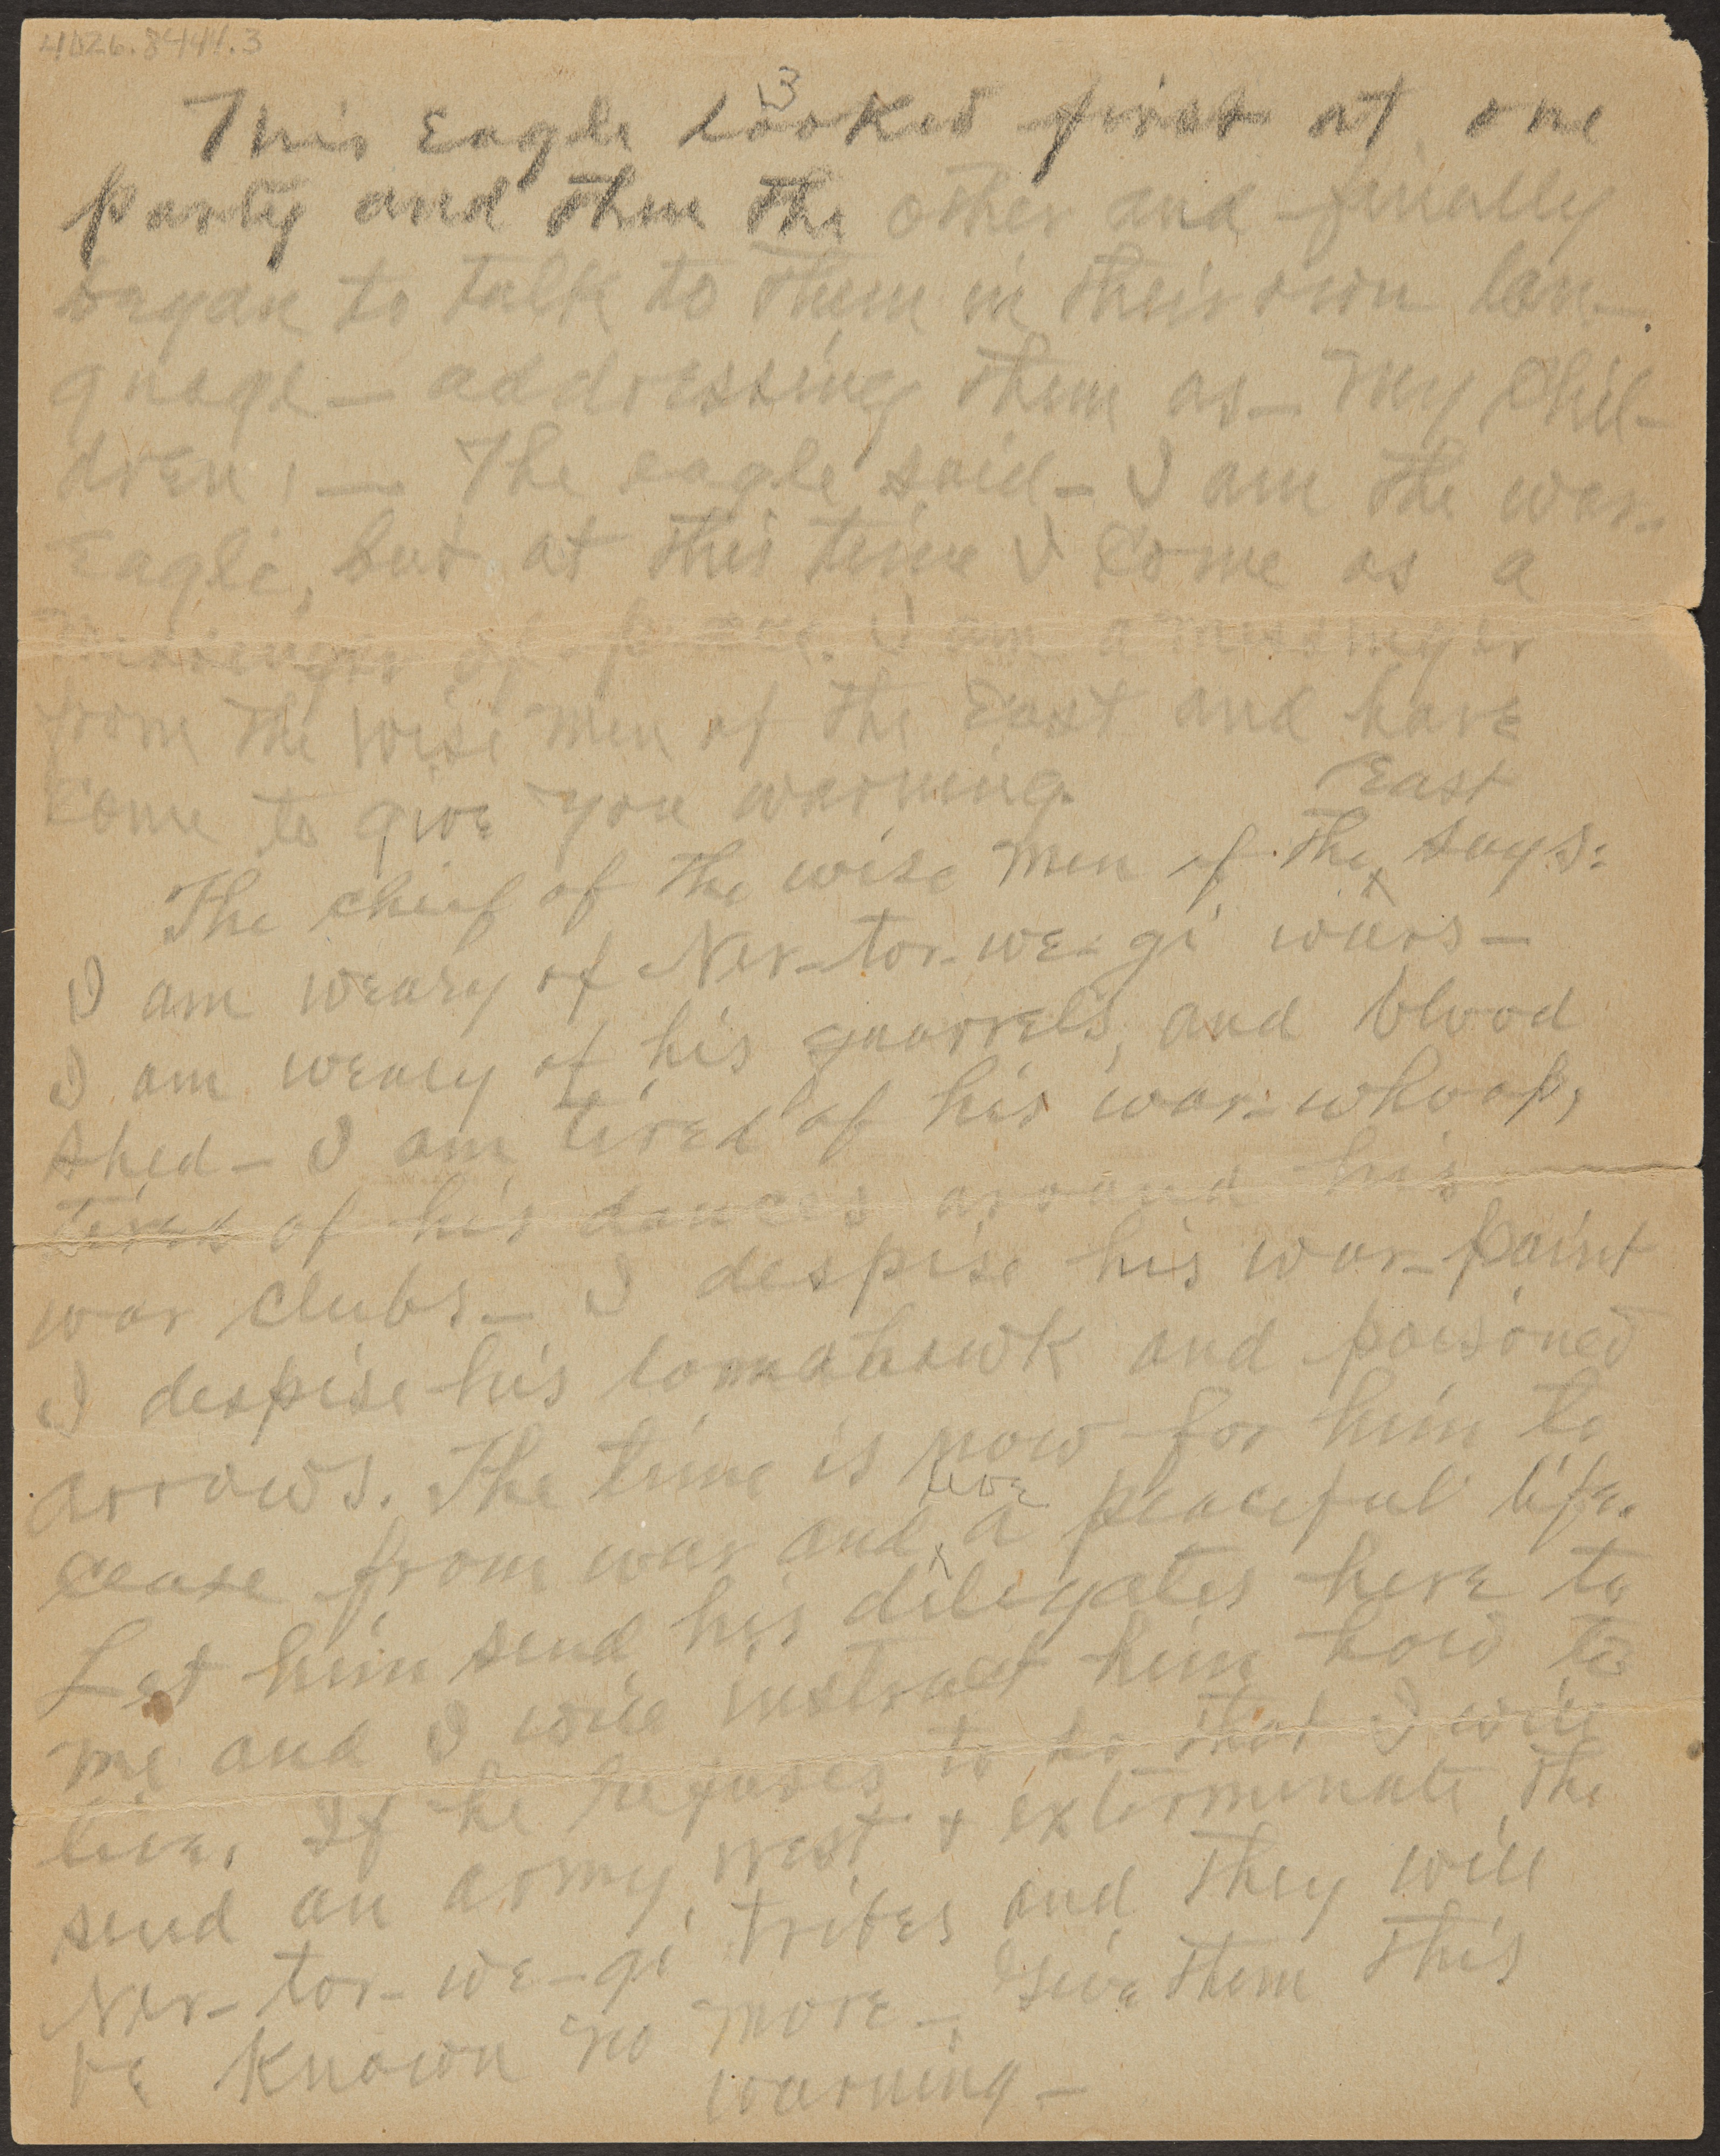 4026.8444.3
3
This Eagle looked first at one
party and then the other and finally
began to talk to them in their own lan-
guage — addressing them as — My Chil-
dren, — The eagle said — I am the war-
Eagle, but at this time I come as a
messenger of peace. I am a messenger
from the wise men of the East and have
come to give you warning.
The chief of the wise men of the East says:
I am weary of Ner-tor-we-gi wars —
I am weary of his quarrels, and blood
shed — I am tired of his war-whoop,
tired of his dances around his
war clubs — I despise his war-paint
I despise his tomahawk and poisoned
arrows. The time is now for him to
cease from war and live a peaceful life.
Let him send his deligates here to
me and I will instruct him how to
live. If he refuses to do that I will
send an army west & exterminate the
Ner-tor-we-gi tribes and they will
be known no more — Give them this
warning —